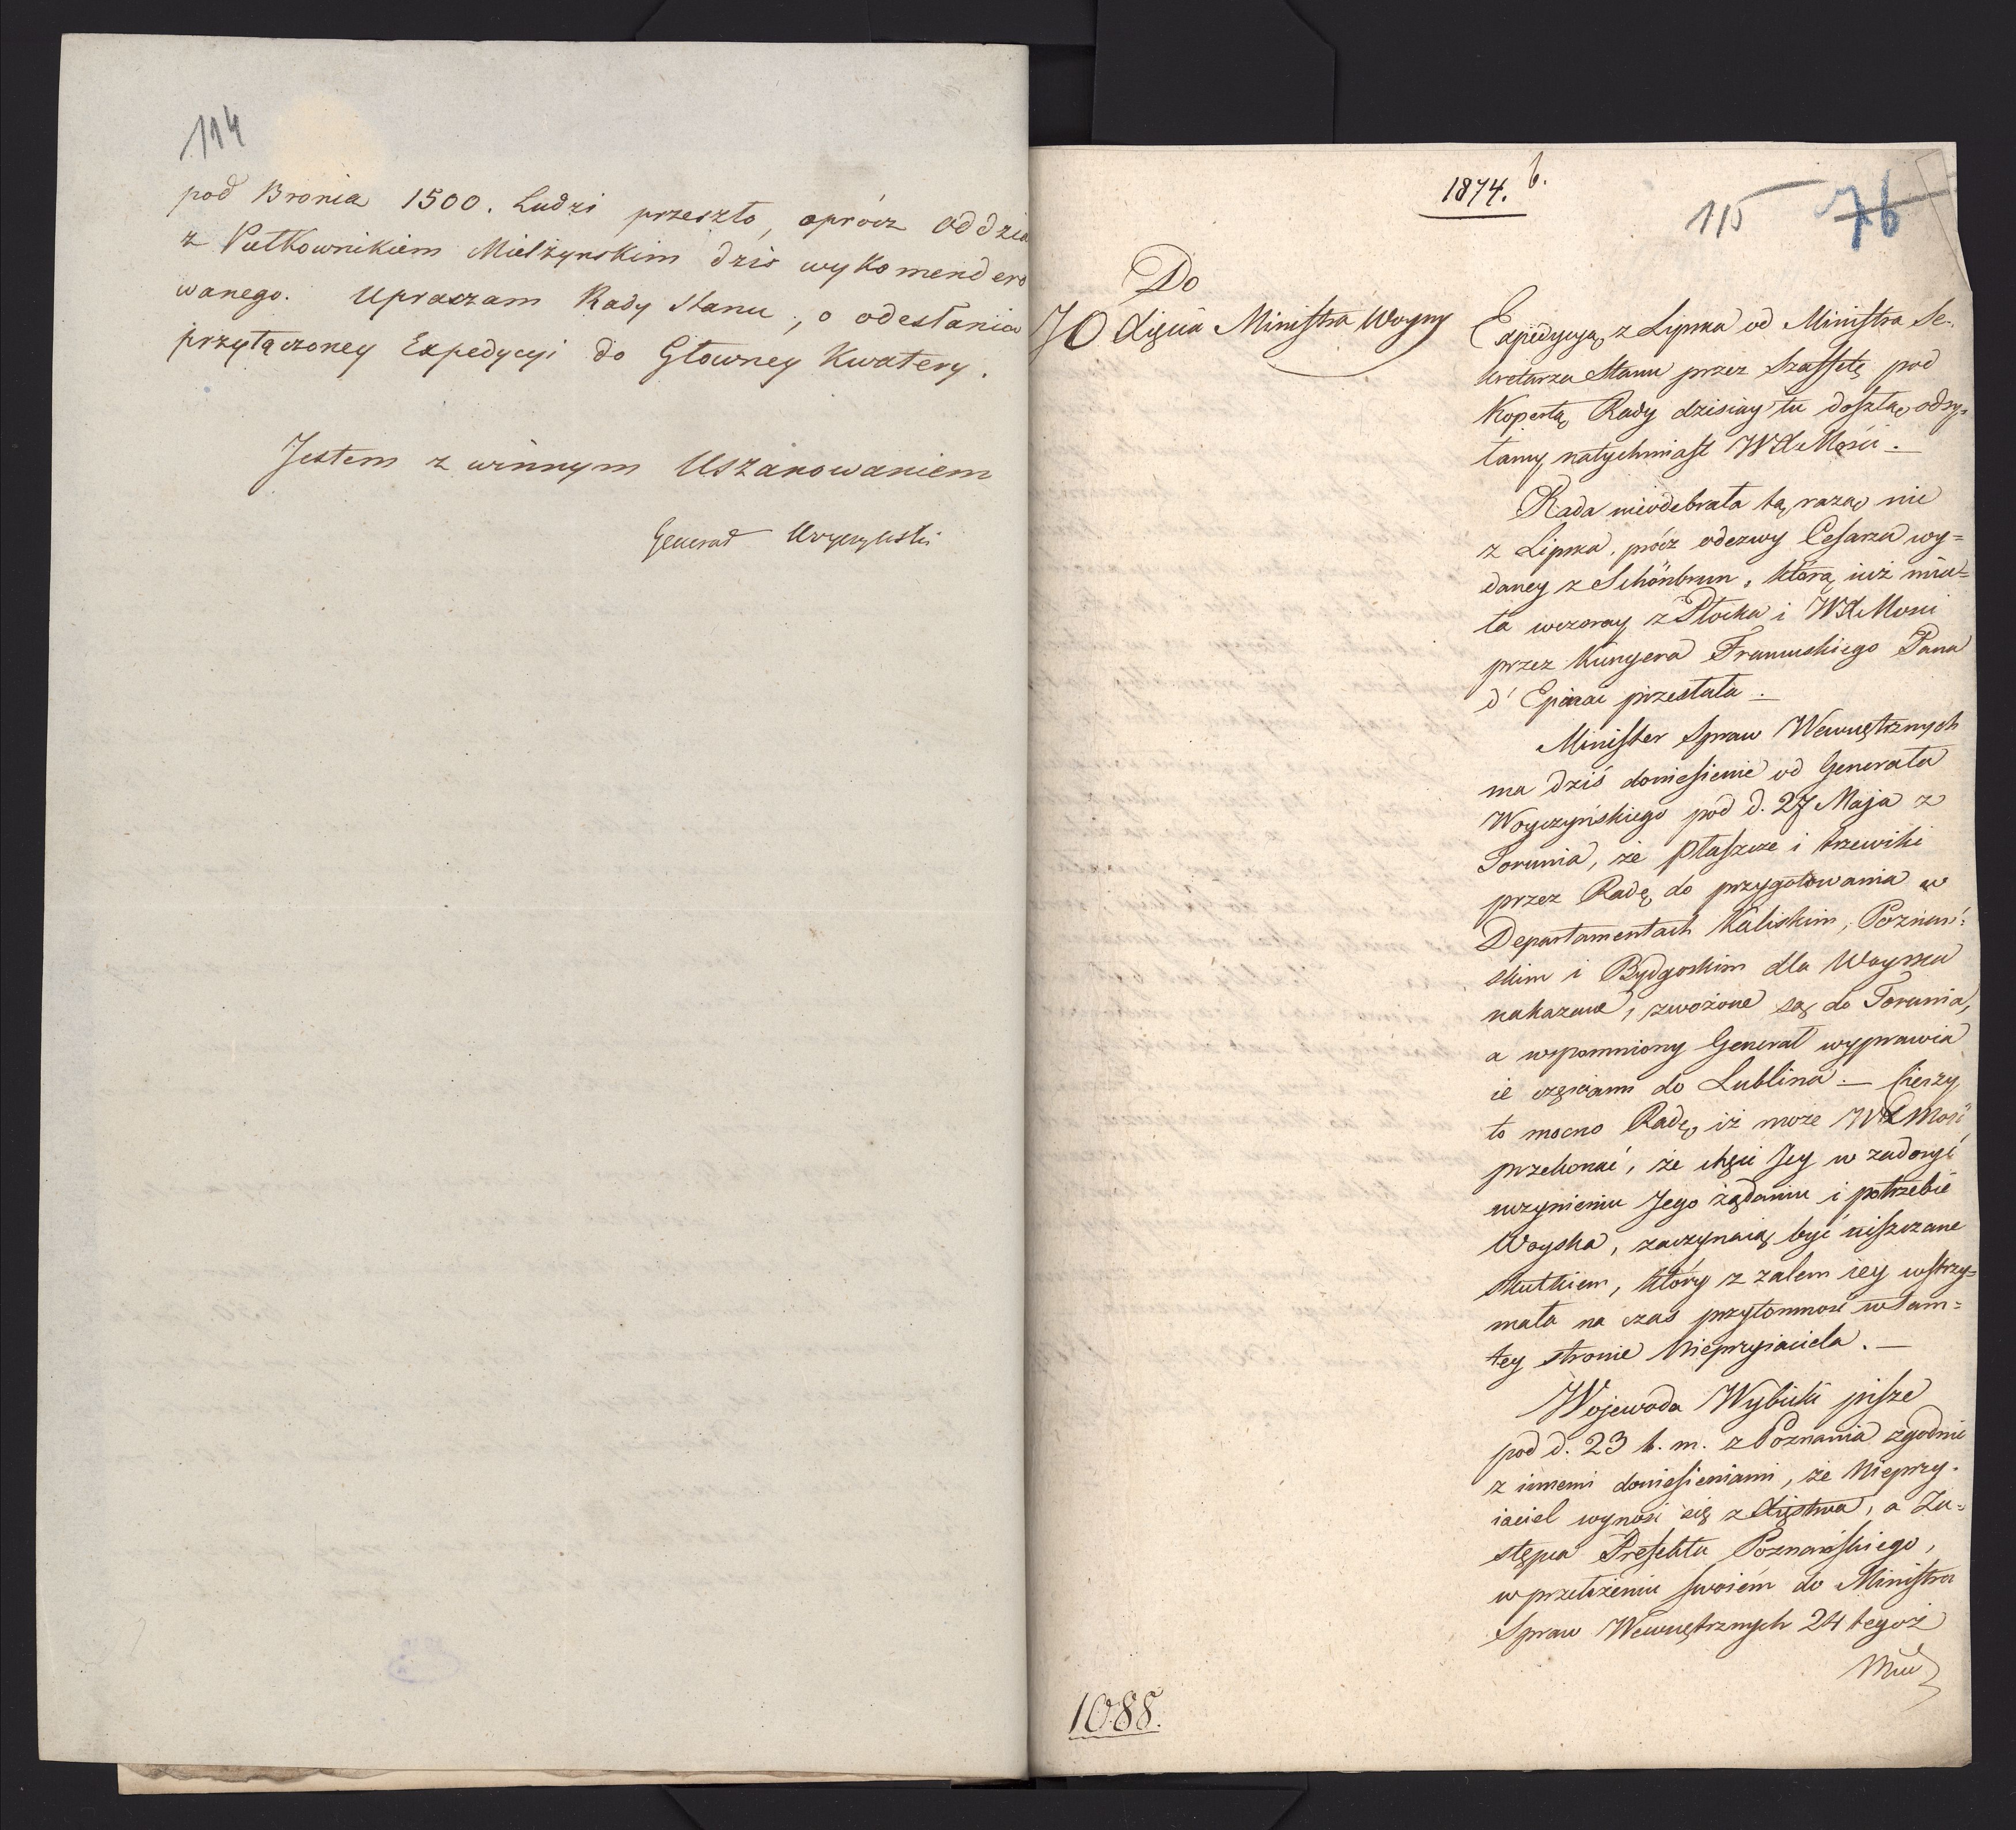 114
pod Bronia 1500. Ludzi przeszło, oprócz oddzia
z Pułkownikiem Mielżynskim dzis wykomendero
wanego. Upraszam Rady Stanu, o odesłania
przyłączoney Expedycyi do Głowney Kwatery.
Jestem z winnym Uszanowaniem
Generał Woyczyński
1874. b.
115 76
Do
JO Xięcia Ministra Woyny
Expedycyą z Lipska od Ministra Se-
kretarza Stanu przez Sztaffetę pod
Kopertą Rady dzisiay tu doszłą odsy-
łamy natychmiast WXMości. —
Rada nieodebrała tą razą nic
z Lipska, prócz odezwy Cesarza wy=
daney z Schönbrun, którą iuż mia=
ła wczoray z Płocka i WXMosci
przez Kuryera Francuskiego Pana
d' przesłała. —
Minister Spraw Wewnętrznych
ma dziś doniesienie od Generała
Woyczyńskiego pod d. 27 Maja z
Torunia, że płaszcze i trzewiki
przez Radę do przygotowania w
Departamentach Kaliskim, Poznań=
skim i Bydgoskim dla Woyska
nakazane, zwożone są do Torunia,
a wspomniony Generał wyprawia
ie częściami do Lublina. — Cieszy
to mocno Radę, iż może WXMość
przekonać, że chęci Jey w zadosyć
uczynieniu Jego żądaniu i potrzebie
Woyska, zaczynaią być uiszczane
skutkiem, który z żalem iey wstrzy=
mała na czas przytomność w tam=
tey stronie Nieprzyiaciela. —
Wojewoda Wybicki pisze
pod d. 23 b. m. z Poznania zgodnie
z innemi doniesieniami, że Nieprzy-
iaciel wynosi się z Xięstwa, a Za=
stępca Prefekta Poznańskiego,
w przełożeniu swoiém do Ministra
Spraw Wewnętrznych 24 tegoż
1088.